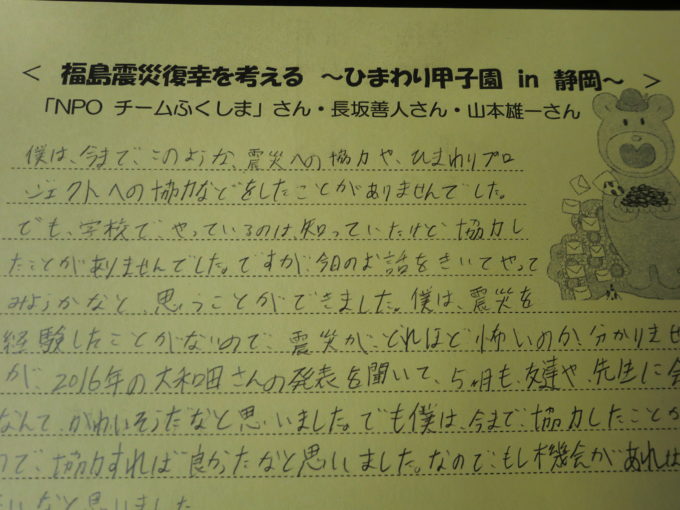 < 福島震災復幸を考える ～ひまわり甲子園 in 静岡～ >
「NPO チームふくしま」さん・長坂善人さん・山本雄一さん
僕は、今まで、このような、震災への協力や、ひまわりプロ
ジェクトへの協力などをしたことがありませんでした。
でも、学校で、やっているのは、知っていたけど協力し
たことがありませんでした。ですが、今日のお話をきいてやって
みようかなと、思うことができました。僕は、震災を
経験したことがないので、震災が、どれほど怖いのか、分かりませ
が、2016年の大和田さんの発表を聞いて、5ヶ月も、友達や、先生に会
なんて、かわいそうだなと思いました。でも僕は、今まで、協力したことが
ので、協力すれば良かったなと思いました。なので、もし機会があれば
たいなと思いました